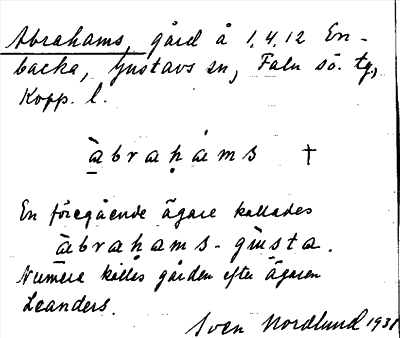 Abrahams, gård å 1,4,12 En-
backa, Gustavs sn, Falu sö. tg.,
Kopp. l.
àbraḥàms †
En föregående ägare kallades
àbrahams-gùsta.
Numera kallas gården efter ägaren
Leanders.
Sven Nordlund 1931